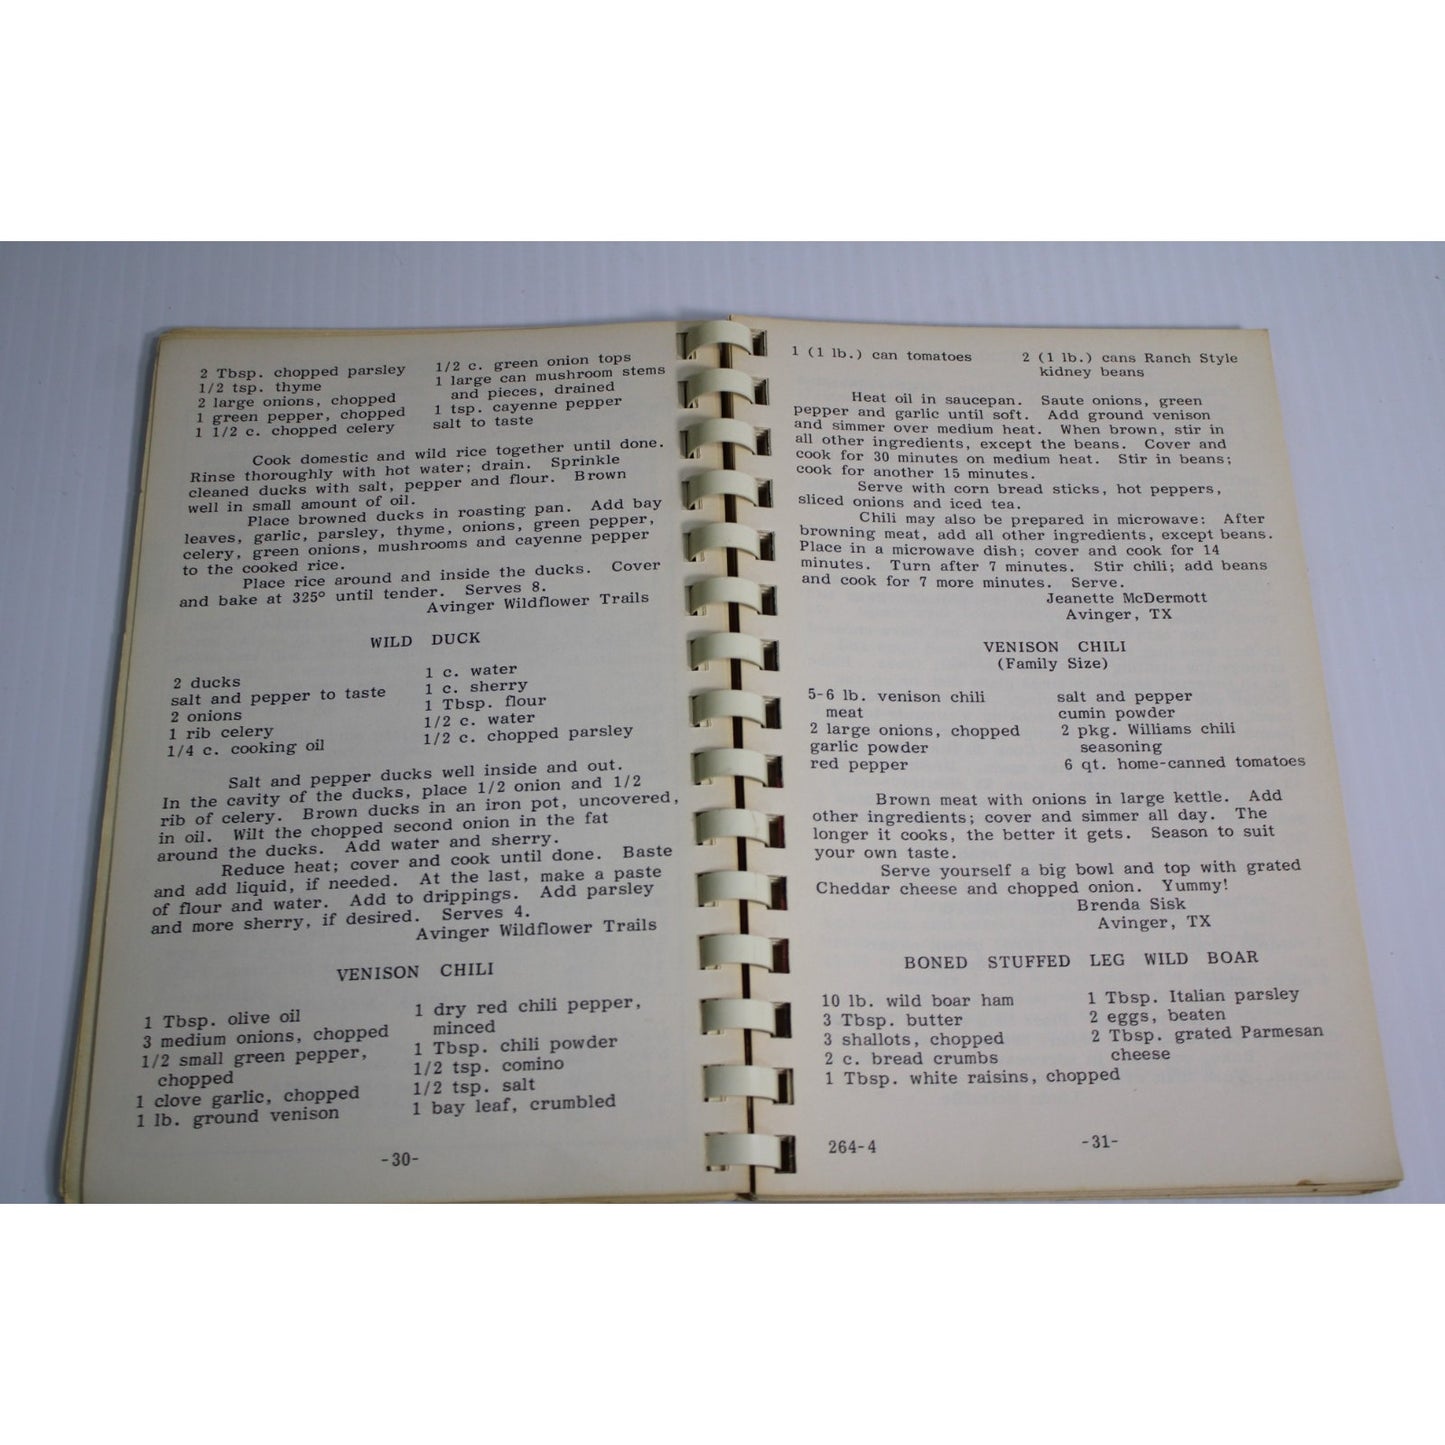 2 Tbsp. chopped parsley
1/2 tsp. thyme
2 large onions, chopped
1 green pepper, chopped
1 1/2 c. chopped celery
1/2 c. green onion tops
1 large can mushroom stems
and pieces, drained
1 tsp. cayenne pepper
salt to taste
Cook domestic and wild rice together until done.
Rinse thoroughly with hot water; drain. Sprinkle
cleaned ducks with salt, pepper and flour. Brown
well in small amount of oil.
Place browned ducks in roasting pan. Add bay
leaves, garlic, parsley, thyme, onions, green pepper,
celery, green onions, mushrooms and cayenne pepper
to the cooked rice.
Place rice around and inside the ducks. Cover
and bake at 325° until tender. Serves 8.
Avinger Wildflower Trails
WILD DUCK
2 ducks
salt and pepper to taste
2 onions
1 rib celery
1/4 c. cooking oil
1 c. water
1 c. sherry
1 Tbsp. flour
1/2 c. water
1/2 c. chopped parsley
Salt and pepper ducks well inside and out.
In the cavity of the ducks, place 1/2 onion and 1/2
rib of celery. Brown ducks in an iron pot, uncovered,
in oil. Wilt the chopped second onion in the fat
around the ducks. Add water and sherry.
Reduce heat; cover and cook until done. Baste
and add liquid, if needed. At the last, make a paste
of flour and water. Add to drippings. Add parsley
and more sherry, if desired. Serves 4.
Avinger Wildflower Trails
VENISON CHILI
1 Tbsp. olive oil
3 medium onions, chopped
1/2 small green pepper,
chopped
1 clove garlic, chopped
1 lb. ground venison
1 dry red chili pepper,
minced
1 Tbsp. chili powder
1/2 tsp. comino
1/2 tsp. salt
1 bay leaf, crumbled
-30-
1 (1 lb.) can tomatoes
2 (1 lb.) cans Ranch Style
kidney beans
Heat oil in saucepan. Saute onions, green
pepper and garlic until soft. Add ground venison
and simmer over medium heat. When brown, stir in
all other ingredients, except the beans. Cover and
cook for 30 minutes on medium heat. Stir in beans;
cook for another 15 minutes.
Serve with corn bread sticks, hot peppers,
sliced onions and iced tea.
Chili may also be prepared in microwave: After
browning meat, add all other ingredients, except beans.
Place in a microwave dish; cover and cook for 14
minutes. Turn after 7 minutes. Stir chili; add beans
and cook for 7 more minutes. Serve.
Jeanette McDermott
Avinger, TX
VENISON CHILI
(Family Size)
5-6 lb. venison chili
meat
2 large onions, chopped
garlic powder
red pepper
salt and pepper
cumin powder
2 pkg. Williams chili
seasoning
6 qt. home-canned tomatoes
Brown meat with onions in large kettle. Add
other ingredients; cover and simmer all day. The
longer it cooks, the better it gets. Season to suit
your own taste.
Serve yourself a big bowl and top with grated
Cheddar cheese and chopped onion. Yummy!
Brenda Sisk
Avinger, TX
BONED STUFFED LEG WILD BOAR
10 lb. wild boar ham
3 Tbsp. butter
3 shallots, chopped
2 c. bread crumbs
1 Tbsp. white raisins, chopped
1 Tbsp. Italian parsley
2 eggs, beaten
2 Tbsp. grated Parmesan
cheese
264-4
-31-